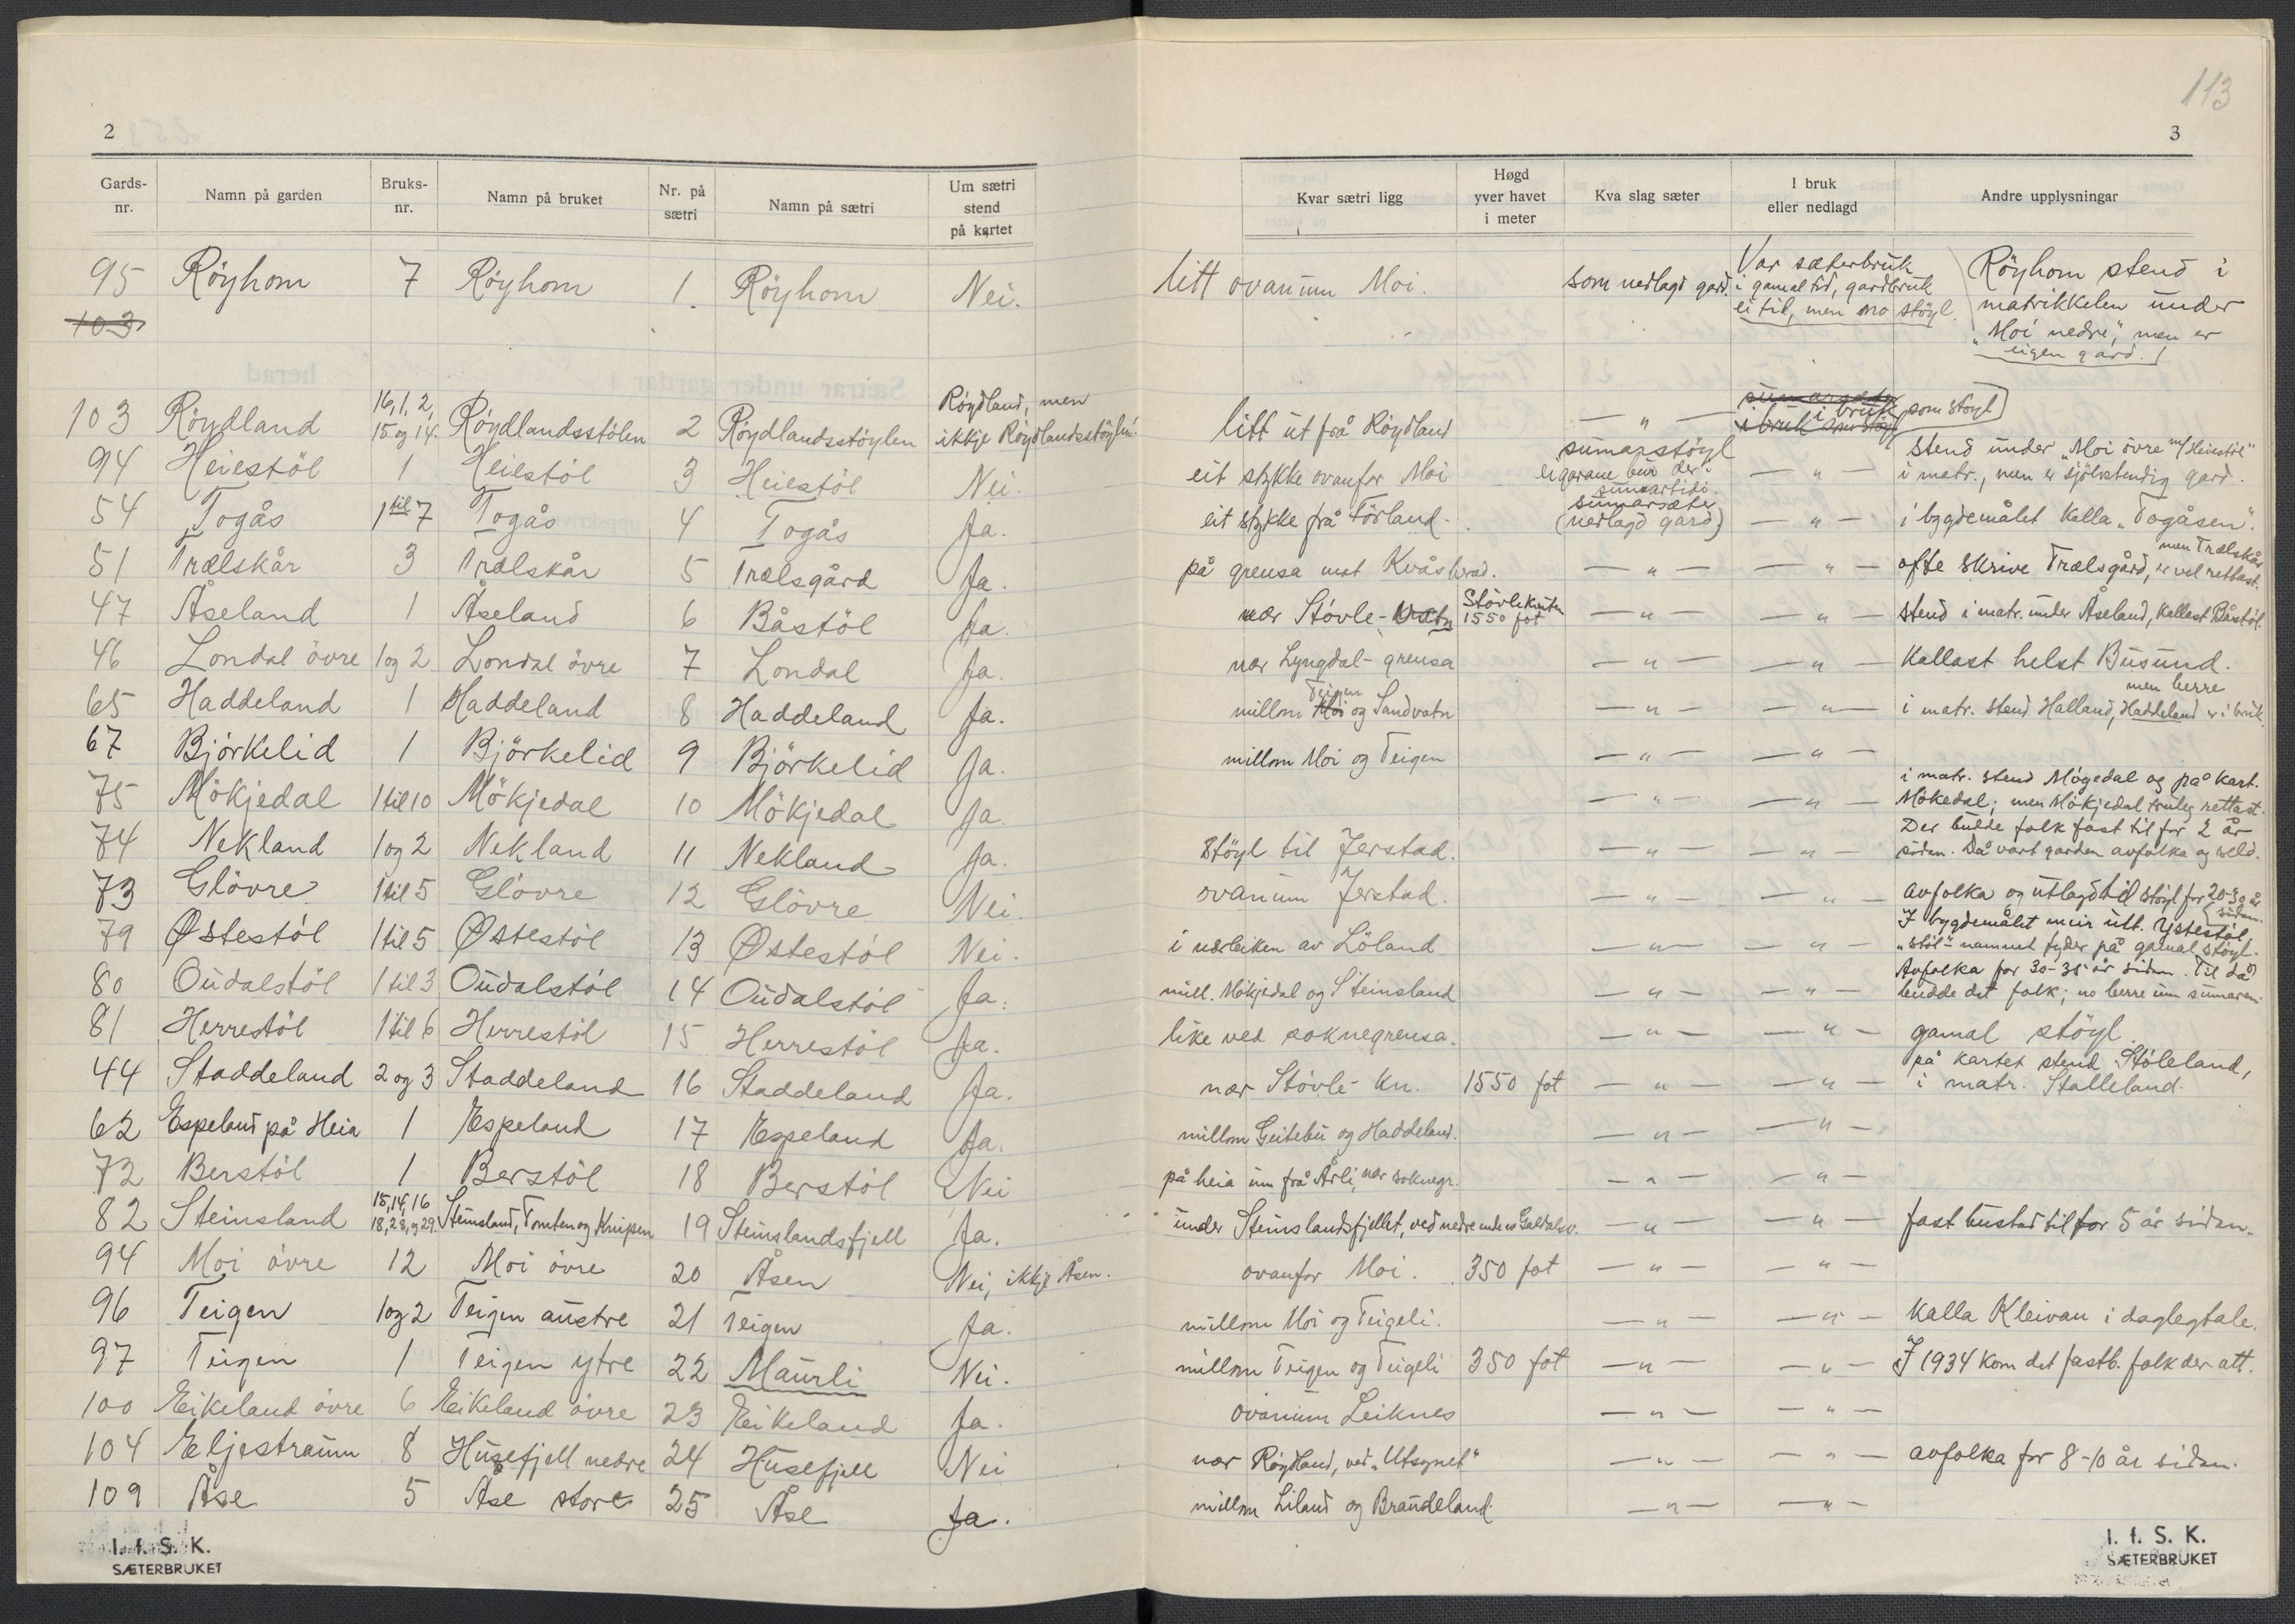 113
2
3
Gards-nr. Namn på garden Bruks-nr. Namn på bruket Nr. på sætri Namn på sætri Um sætri stend på kartet
95 Röyhom 7 Röyhom 1. Röyhom Nei.
103
103 Röydland 16, 1, 2, 15 og 14. Röydlandsstölen 2 Röydlandsstöylen Röydland, men ikkje Röydlandsstöylen.
94 Heiestöl 1 Heiestöl 3 Heiestöl Nei.
54 Togås 1 til 7 Togås 4 Togås Ja.
51 Trælskår 3 Trælskår 5 Trælsgård Ja.
47 Åseland 1 Åseland 6 Båstöl Ja.
46 Londal övre 1 og 2 Londal övre 7 Londal Ja.
65 Haddeland 1 Haddeland 8 Haddeland Ja.
67 Björkelid 1 Björkelid 9 Björkelid Ja.
75 Mökjedal 1 til 10 Mökjedal 10 Mökjedal Ja.
74 Nekland 1 og 2 Nekland 11 Nekland Ja.
73 Glövre 1 til 5 Glövre 12 Glövre Nei.
79 Østestöl 1 til 5 Østestöl 13 Østestöl Nei.
80 Oudalstöl 1 til 3 Oudalstöl 14 Oudalstöl Ja.
81 Herrestöl 1 til 6 Herrestöl 15 Herrestöl Ja.
44 Staddeland 2 og 3 Staddeland 16 Staddeland Ja.
62 Espeland på Heia 1 Espeland 17 Espeland Ja.
72 Berstöl 1 Berstöl 18 Berstöl Nei
82 Steinsland 15, 14, 16 18, 28, og 29. Steinsland, Tomten og Knipen 19 Steinslandsfjell Ja.
94 Moi övre 12 Moi övre 20 Åsen Nei, ikkje Åsen.
96 Teigen 1 og 2 Teigen austre 21 Teigen Ja.
97 Teigen 1 Teigen ytre 22 Maurli Nei.
100 Eikeland övre 6 Eikeland övre 23 Eikeland Ja.
104 Eljestraum 8 Husefjell nedre 24 Husefjell Nei
109 Åse 5 Åse store 25 Åse Ja.
I. f. S. K.
SÆTERBRUKET
Kvar sætri ligg Høgd yver havet i meter Kva slag sæter I bruk eller nedlagd Andre upplysningar
litt ovanum Moi. som nedlagd gard. Var sæterbruk i gamal tid, gardbruk ei tid, men no stöyl. Röyhom stend i matrikkelen under „Moi nedre", men er eigen gard.
litt ut frå Röydland — " — i bruk som stöyl
eit stykke ovanfor Moi sumarstöyl eigarane bur der i sumartidi. — " — stend under „Moi övre m/ Heiestöl" i matr., men er sjölvstendig gard.
eit stykke frå Förland. sumarsæter (nedlagd gard) — " — i bygdemålet kalla „Togåsen".
på grensa mot Kvås herad. — " — — " — ofte skrive Trælsgård, men Trælskår er vel rettast.
nær Stövle- Stövleknuten 1550 fot — " — — " — stend i matr. under Åseland, kallast Båstöl.
nær Lyngdal-grensa — " — — " — Kallast helst Busund.
millom Teigen og Sandvatn — " — — " — i matr. stend Halland, men berre Haddeland er i bruk.
millom Moi og Teigen — " — — " —
— " — — " — i matr. stend Mögedal og på kart. Mökedal; men Mökjedal truleg rettast.
Stöyl til Jerstad. — " — — " — Der budde folk fast til for 2 år sidan. Då vart garden avfolka og seld.
ovanum Jerstad. — " — — " — avfolka og utlagd til stöyl for 20-30 år sidan.
i nærleiken av Löland — " — — " — I bygdemålet meir utt. Ystestöl. „stöl"-namnet tyder på gamal stöyl.
mill. Mökjedal og Steinsland — " — — " — Avfolka for 30-35 år sidan. Til då budde det folk; no berre um sumaren.
like ved soknegrensa. — " — — " — gamal stöyl.
nær Stövle-kn. 1550 fot — " — — " — på kartet stend Stöleland, i matr. Stalleland.
millom Geitebu og Haddeland. — " — — " —
på heia um frå Årli, nær soknegr. — " — — " —
under Steinslandsfjellet, ved nedre enden Galdalsv. — " — — " — fast bustad til for 5 år sidan.
ovanfor Moi. 350 fot — " — — " —
millom Moi og Teigeli. — " — — " — kalla Kleivan i daglegtale.
millom Teigen og Teigeli 350 fot — " — — " — I 1934 kom det fastb. folk der att.
ovanum Leiknes — " — — " —
nær Röydland, ved „Utsynet" — " — — " — avfolka for 8-10 år sidan.
millom Liland og Brandeland. — " — — " —
I. f. S. K.
SÆTERBRUKET